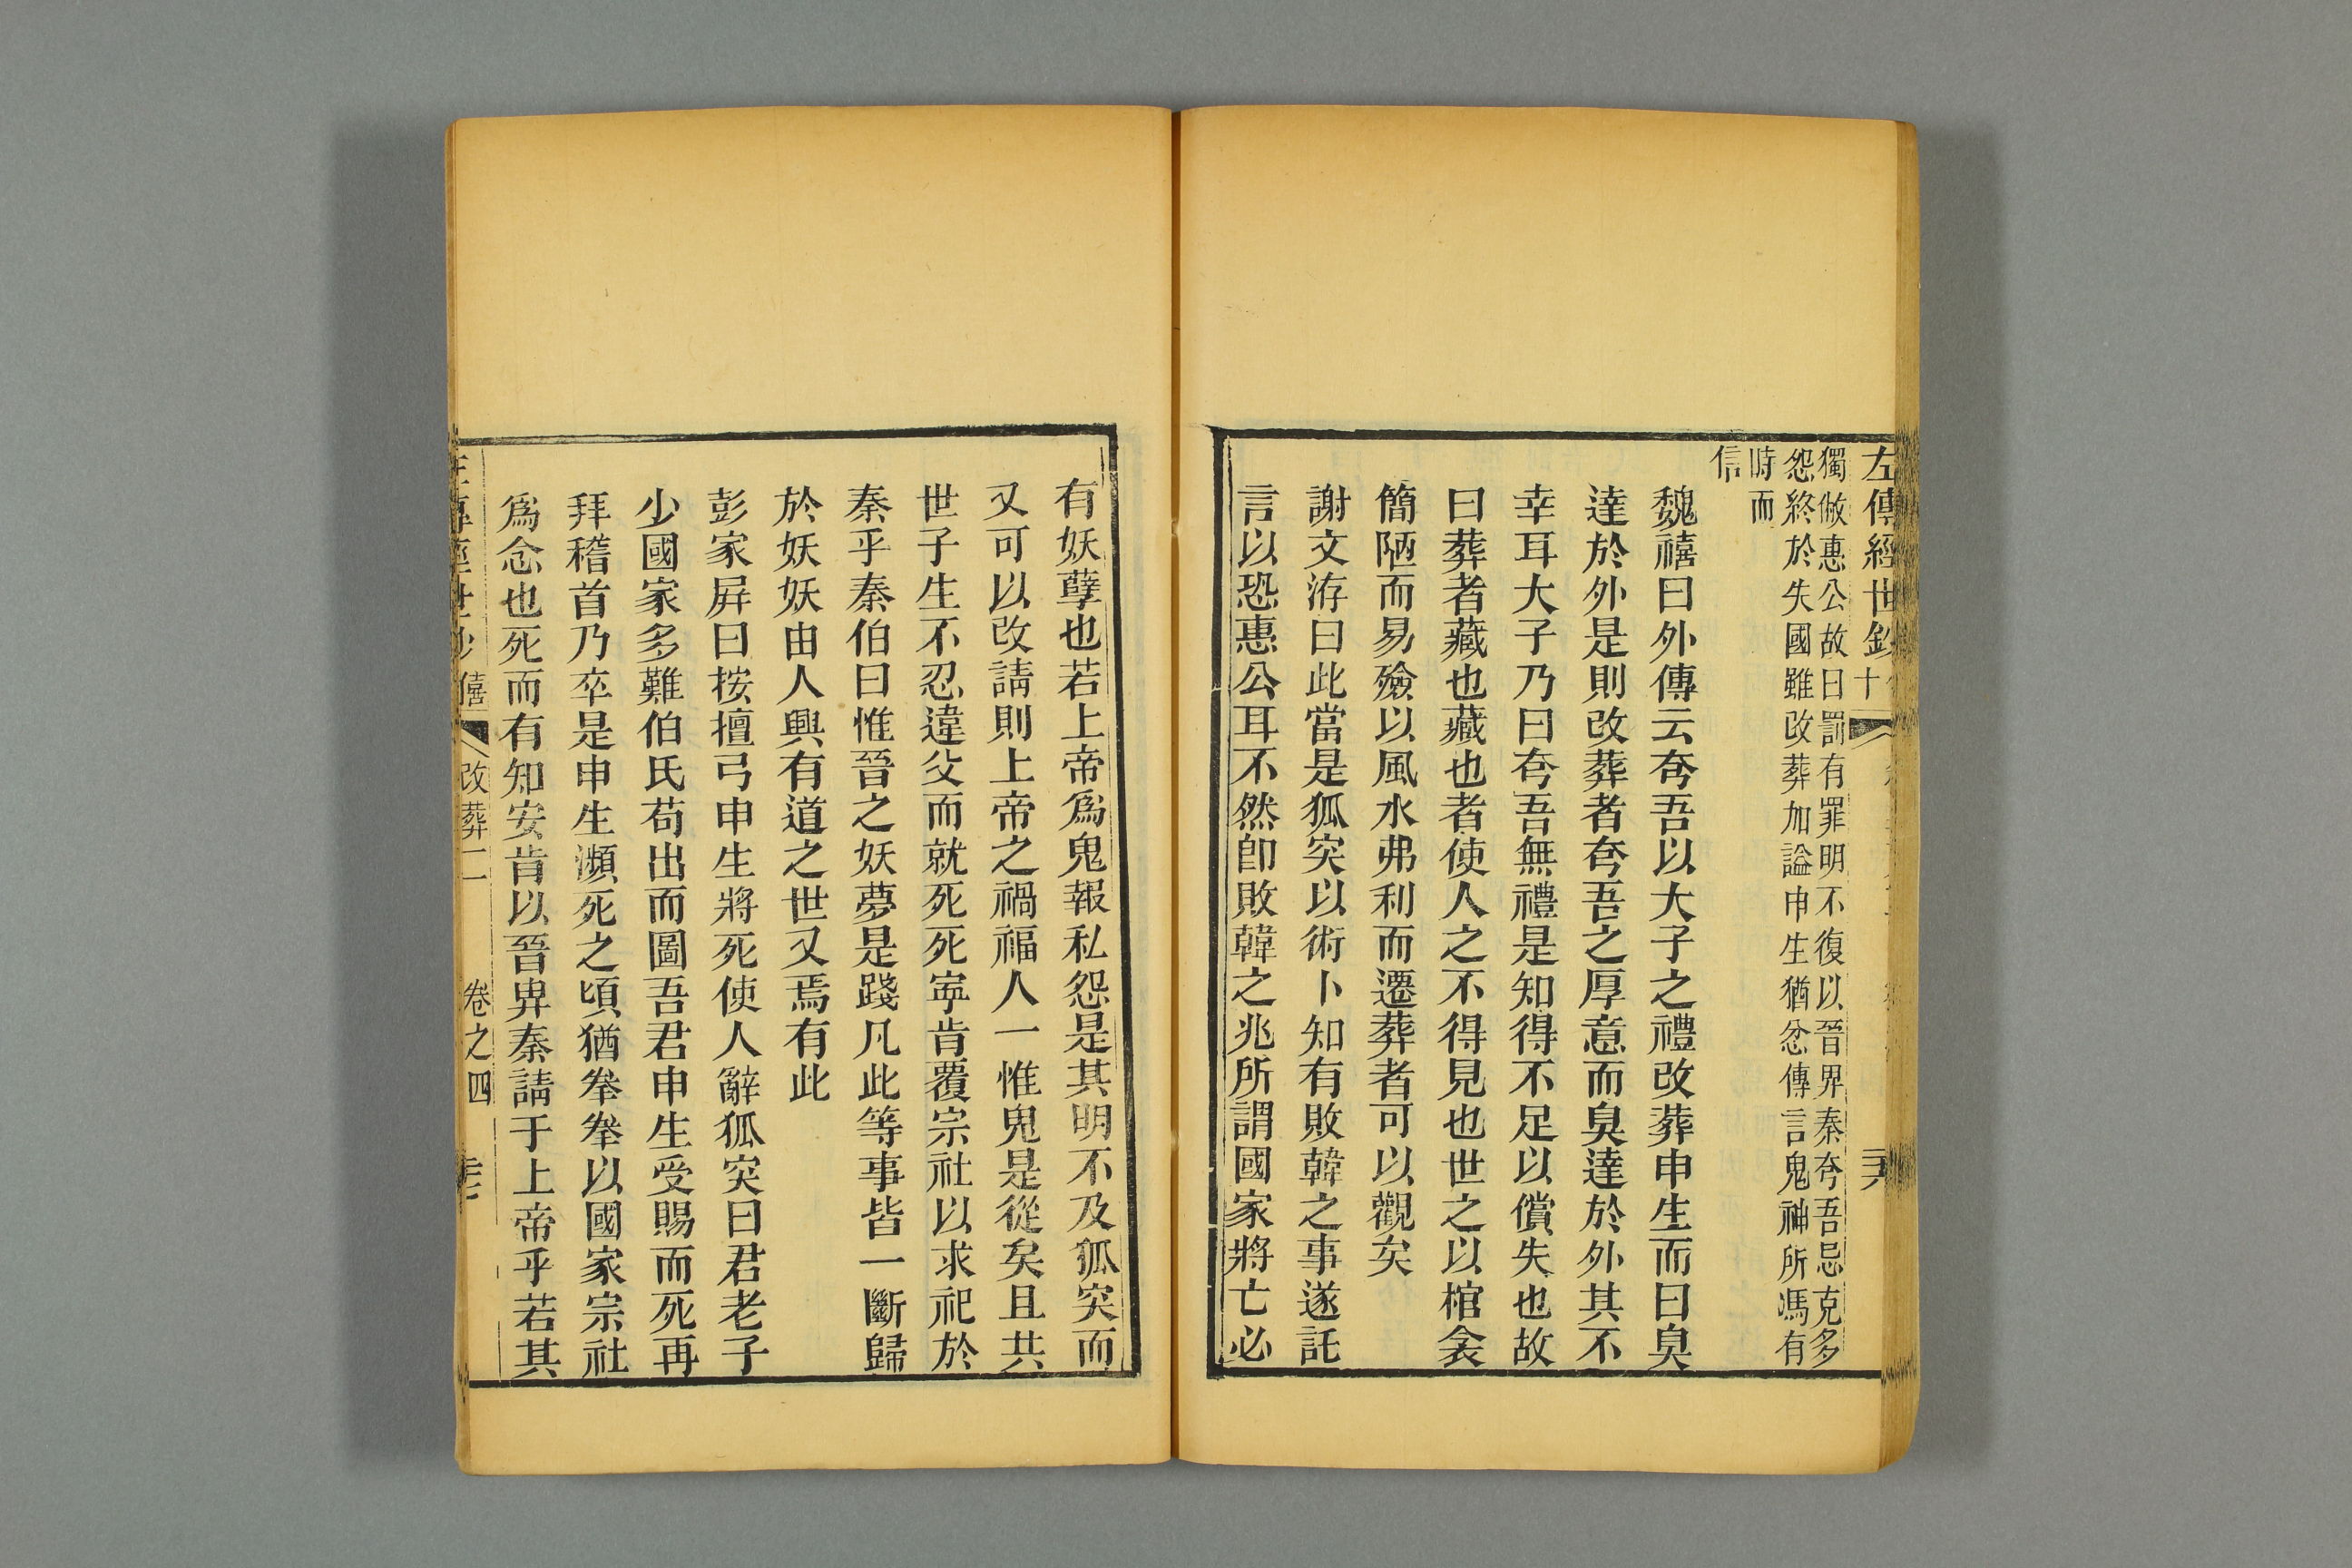 左傳經世鈔
十
二六
獨敝惠公故曰罰有罪明不復以晉畀秦夸吾忌克多
怨終於失國雖改葬加謚申生猶忿傳言鬼神所馮有
時而
信
魏禧曰外傳云夸吾以大子之禮改葬申生而曰臭
達於外是則改葬者夸吾之厚意而臭達於外其不
幸耳大子乃曰夸吾無禮是知得不足以償失也故
曰葬者藏也藏也者使人之不得見也世之以棺衾
簡陋而易殮以風水弗利而遷葬者可以觀矣
謝文洊曰此當是狐突以術卜知有敗韓之事遂託
言以恐惠公耳不然卽敗韓之兆所謂國家將亡必
有妖孽也若上帝爲鬼報私怨是其明不及狐突而
又可以改請則上帝之禍福人一惟鬼是從矣且共
世子生不忍違父而就死死寧肯覆宗社以求祀於
秦乎秦伯曰惟晉之妖夢是踐凡此等事皆一斷歸
於妖妖由人興有道之世又焉有此
彭家屛曰按擅弓申生將死使人辭狐突曰君老子
少國家多難伯氏苟出而圖吾君申生受賜而死再
拜稽首乃卒是申生瀕死之頃猶拳拳以國家宗社
爲念也死而有知安肯以晉畀秦請于上帝乎若其
左傳經世鈔 僖 改葬二 卷之四